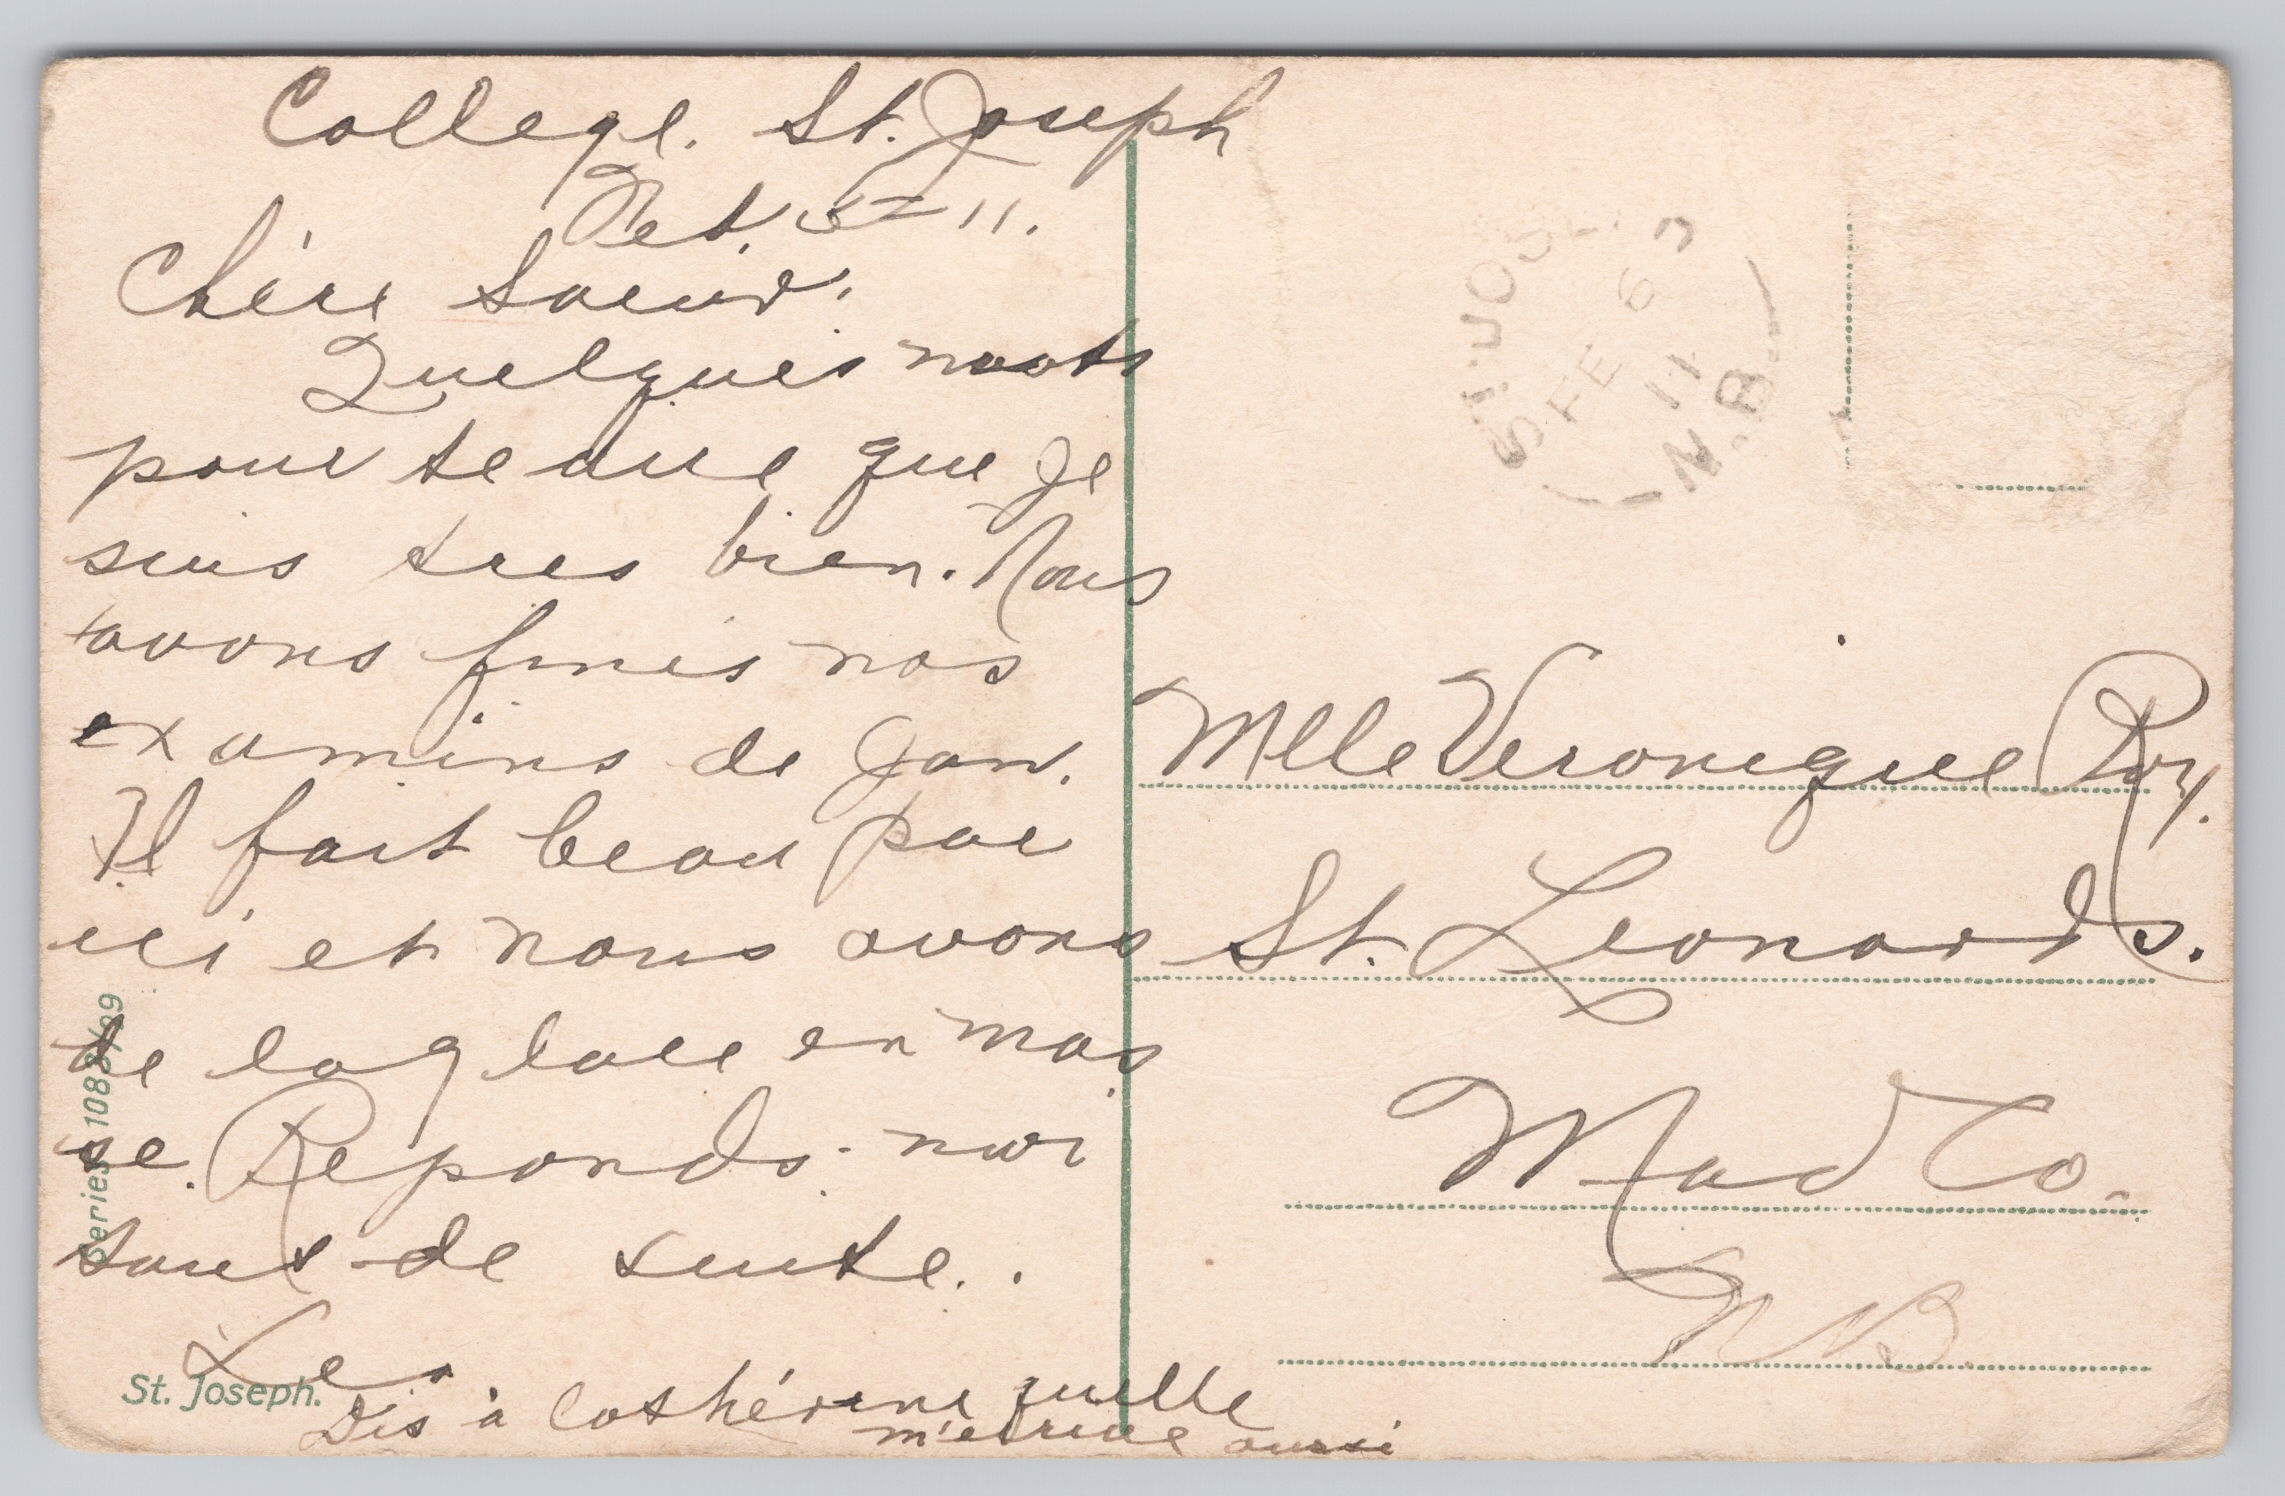 College. St. Joseph
5 - 11.
Chère Soeur.
Quelques mots
pour te dire que je
suis tres bien. Nous
avons finis nos
examins de Jan.
Il fait beau par
ici et nous avons
de la glace en mas
se. Reponds moi
tout-de suite.
Leo
Dis à Cathérine quelle
m'ecrive aussi
Series 1083/99
St. Joseph.
FE 6
11
N.B.
Mlle Veronique Roy.
St. Leonards.
Mad Co.
N B.